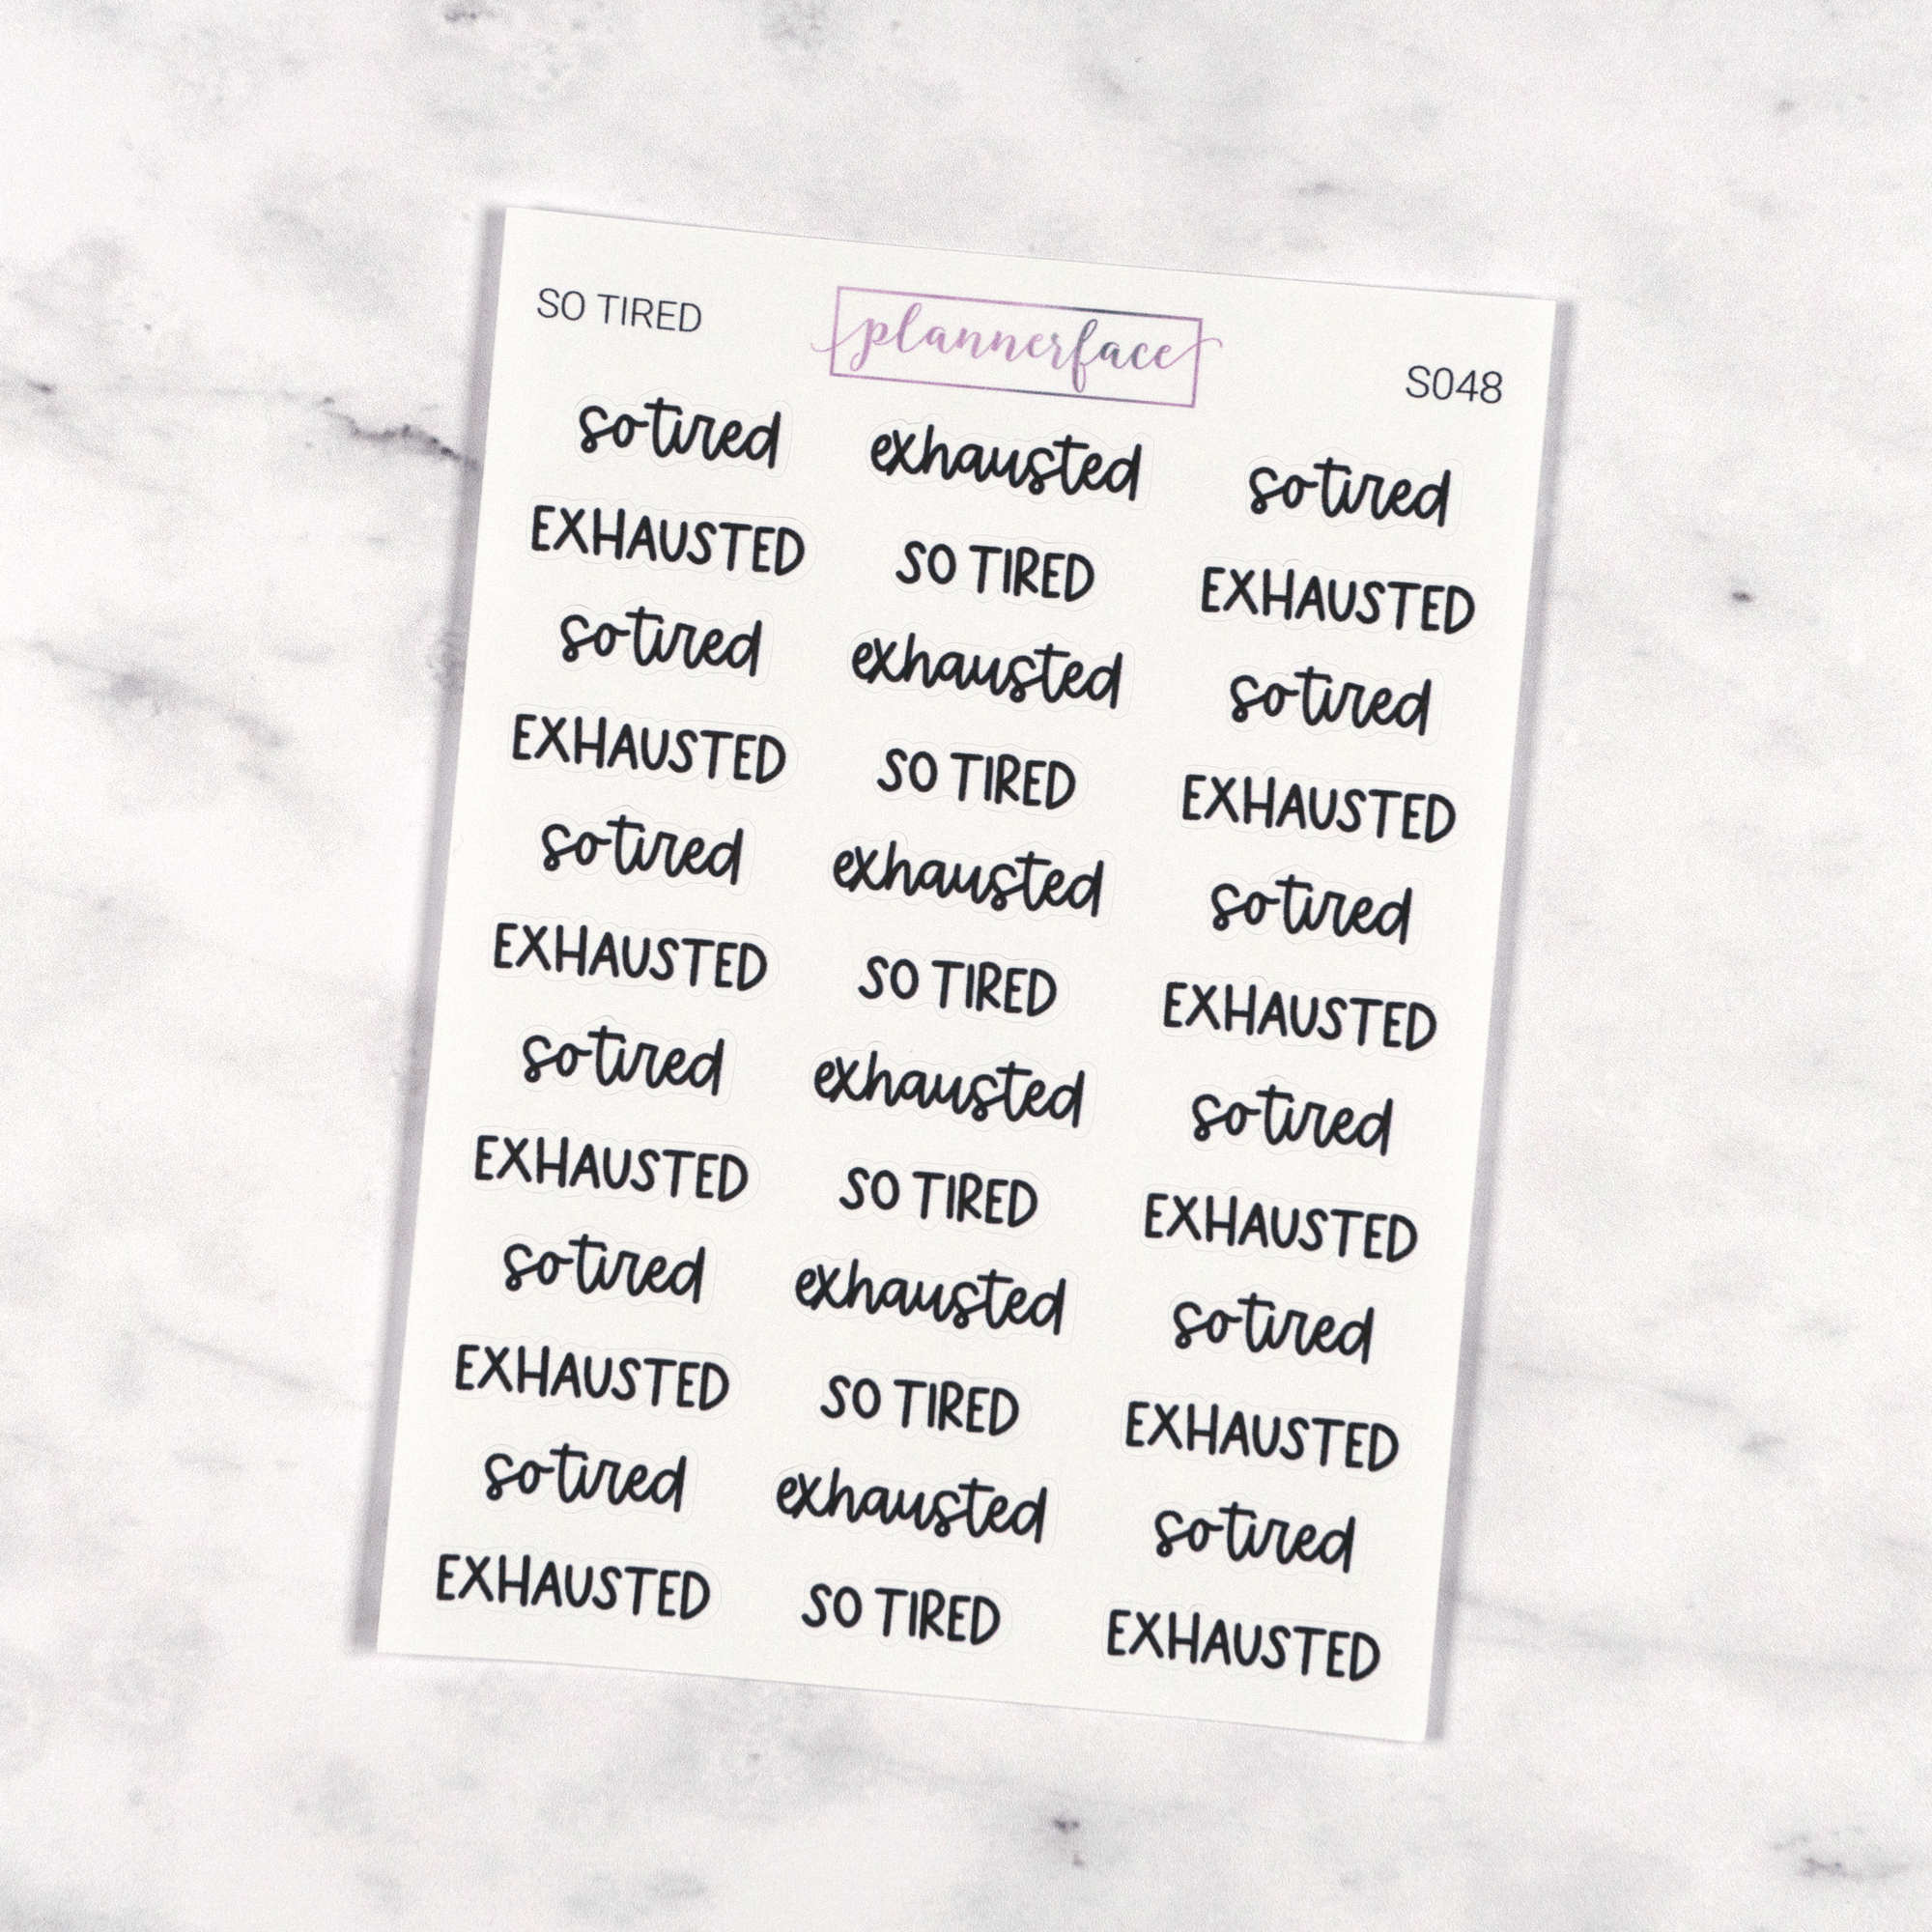 SO TIRED plannerface S048
so tired exhausted so tired
EXHAUSTED SO TIRED EXHAUSTED
so tired exhausted so tired
EXHAUSTED SO TIRED EXHAUSTED
so tired exhausted so tired
EXHAUSTED SO TIRED EXHAUSTED
so tired exhausted so tired
EXHAUSTED SO TIRED EXHAUSTED
so tired exhausted so tired
EXHAUSTED SO TIRED EXHAUSTED
so tired exhausted so tired
EXHAUSTED SO TIRED EXHAUSTED